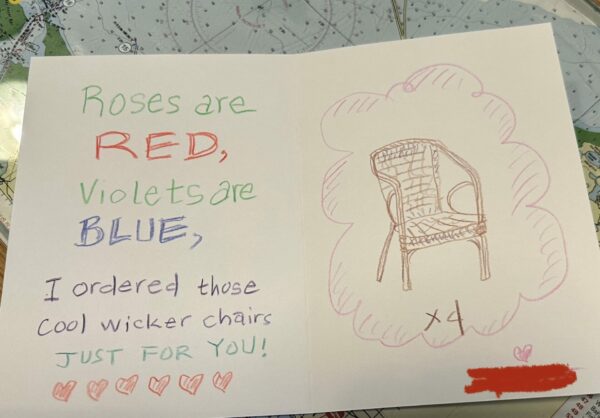 Roses are
RED,
Violets are
BLUE,
I ordered those
cool wicker chairs
JUST FOR YOU!
x4